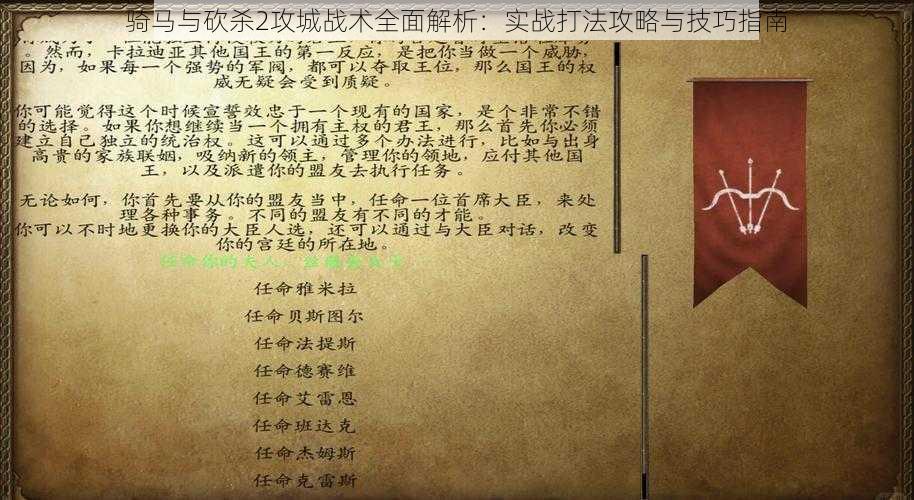 骑马与砍杀2攻城战术全面解析：实战打法攻略与技巧指南
。然而，卡拉迪亚其他国王的第一反应，是把你当做一个威胁，
因为，如果每一个强势的军阀，都可以夺取王位，那么国王的权
威无疑会受到质疑。
你可能觉得这个时候宣誓效忠于一个现有的国家，是个非常不错
的选择。如果你想继续当一个拥有主权的君王，那么首先你必须
建立自己独立的统治权。这可以通过多个办法进行，比如与出身
高贵的家族联姻，吸纳新的领主，管理你的领地，应付其他国
王，以及派遣你的盟友去执行任务。
无论如何，你首先要从你的盟友当中，任命一位首席大臣，来处
理各种事务。不同的盟友有不同的才能。
你可以不时地更换你的大臣人选，还可以通过与大臣对话，改变
你的宫廷的所在地。
任命你的夫人，
任命雅米拉
任命贝斯图尔
任命法提斯
任命德赛维
任命艾雷恩
任命班达克
任命杰姆斯
任命克雷斯